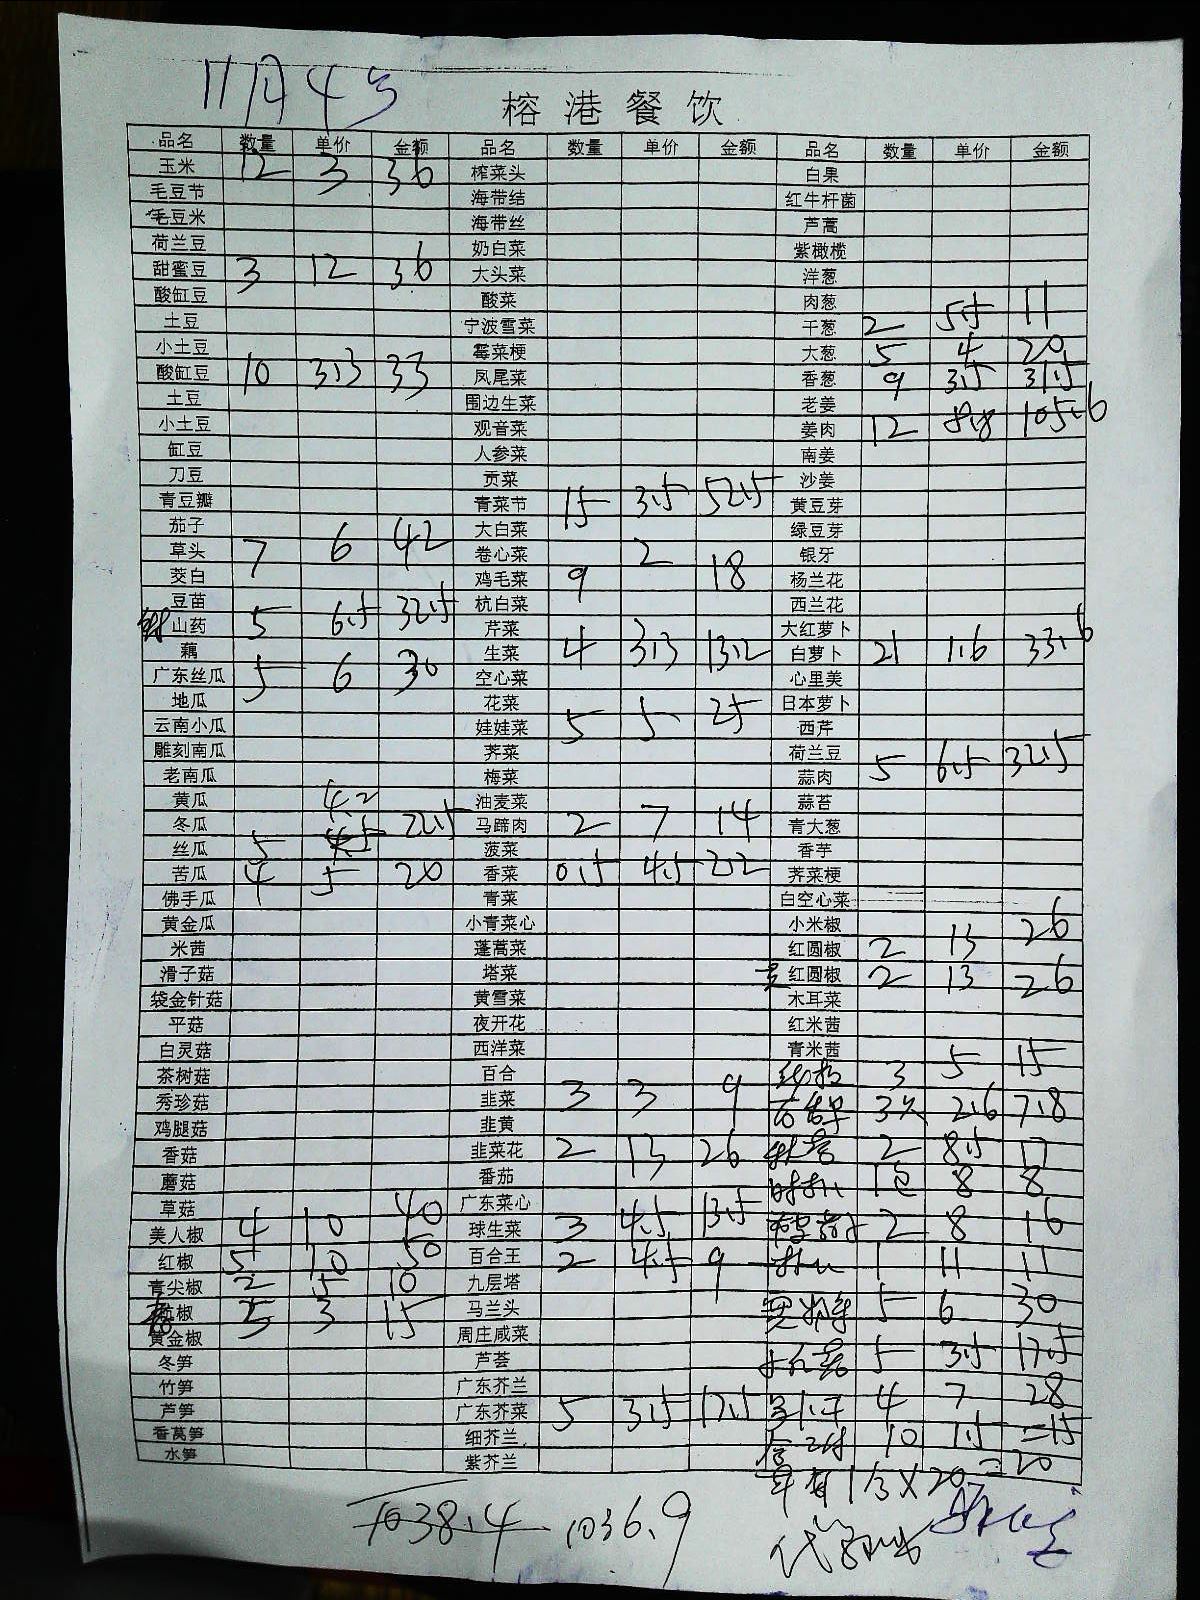 11月4号
榕港餐饮
品名 数量 单价 金额 品名 数量 单价 金额 品名 数量 单价 金额
玉米 12 3 36 榨菜头 白果
毛豆节 海带结 红牛杆菌
毛豆米 海带丝 芦蒿
荷兰豆 奶白菜 紫橄榄
甜蜜豆 3 12 36 大头菜 洋葱
酸缸豆 酸菜 肉葱
土豆 宁波雪菜 干葱 2 5.5 11
小土豆 霉菜梗 大葱 5 4 20
酸缸豆 10 3.3 33 凤尾菜 香葱 9 3.5 31.5
土豆 围边生菜 老姜
小土豆 观音菜 姜肉 12 8.8 105.6
缸豆 人参菜 南姜
刀豆 贡菜 沙姜
青豆瓣 青菜节 15 3.5 52.5 黄豆芽
茄子 大白菜 绿豆芽
草头 7 6 42 卷心菜 2 银牙
茭白 鸡毛菜 9 18 杨兰花
豆苗 杭白菜 西兰花
山药 5 6.5 32.5 芹菜 大红萝卜
藕 生菜 4 3.3 13.2 白萝卜 21 1.6 33.6
广东丝瓜 5 6 30 空心菜 心里美
地瓜 花菜 日本萝卜
云南小瓜 娃娃菜 5 5 25 西芹
雕刻南瓜 荠菜 荷兰豆
老南瓜 梅菜 蒜肉 5 6.5 32.5
黄瓜 4.2 油麦菜 蒜苔
冬瓜 22.5 马蹄肉 2 7 14 青大葱
丝瓜 5 4.5 菠菜 香芋
苦瓜 4 5 20 香菜 0.5 4.5 2.2 荠菜梗
佛手瓜 青菜 白空心菜
黄金瓜 小青菜心 小米椒
米茜 蓬蒿菜 红圆椒 2 13 26
滑子菇 塔菜 红圆椒 2 13 26
袋金针菇 黄雪菜 木耳菜
平菇 夜开花 红米茜
白灵菇 西洋菜 青米茜
茶树菇 百合 3 5 15
秀珍菇 韭菜 3 3 9 3 2.6 7.8
鸡腿菇 韭黄
香菇 韭菜花 2 13 26 2 8.5 17
蘑菇 番茄 1包 8 8
草菇 广东菜心
美人椒 4 10 40 球生菜 3 4.5 13.5 2 8 16
红椒 5 10 50 百合王 2 4.5 9 1 11 11
青尖椒 2 5 10 九层塔
杭椒 5 3 15 马兰头 5 6 30
黄金椒 周庄咸菜
冬笋 芦荟 5 3.5 17.5
竹笋 广东芥兰
芦笋 广东芥菜 5 3.5 17.5 4 7 28
香莴笋 细芥兰 10 1.5 =15
水笋 紫芥兰
20=20
1038.4 1036.9